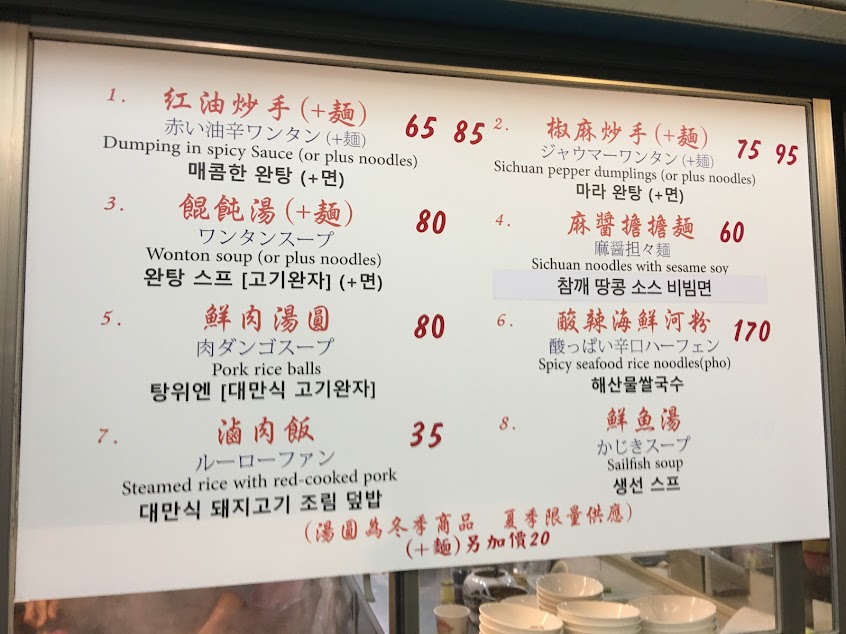 1. 红油炒手(+麵) 65 85
赤い油辛ワンタン (+麺)
Dumping in spicy Sauce (or plus noodles)
매콤한 완탕 (+면)
2. 椒麻炒手(+麵) 75 95
ジャウマーワンタン (+麺)
Sichuan pepper dumplings (or plus noodles)
마라 완탕 (+면)
3. 餛飩湯(+麵) 80
ワンタンスープ
Wonton soup (or plus noodles)
완탕 스프 [고기완자] (+면)
4. 麻醬擔擔麵 60
麻醤担々麺
Sichuan noodles with sesame soy
참깨 땅콩 소스 비빔면
5. 鮮肉湯圓 80
肉ダンゴスープ
Pork rice balls
탕위엔 [대만식 고기완자]
6. 酸辣海鮮河粉 170
酸っぱい辛口ハーフェン
Spicy seafood rice noodles(pho)
해산물쌀국수
7. 滷肉飯 35
ルーローファン
Steamed rice with red-cooked pork
대만식 돼지고기 조림 덮밥
8. 鮮魚湯
かじきスープ
Sailfish soup
생선 스프
(湯圓為冬季商品 夏季限量供應)
(+麵)另加價20